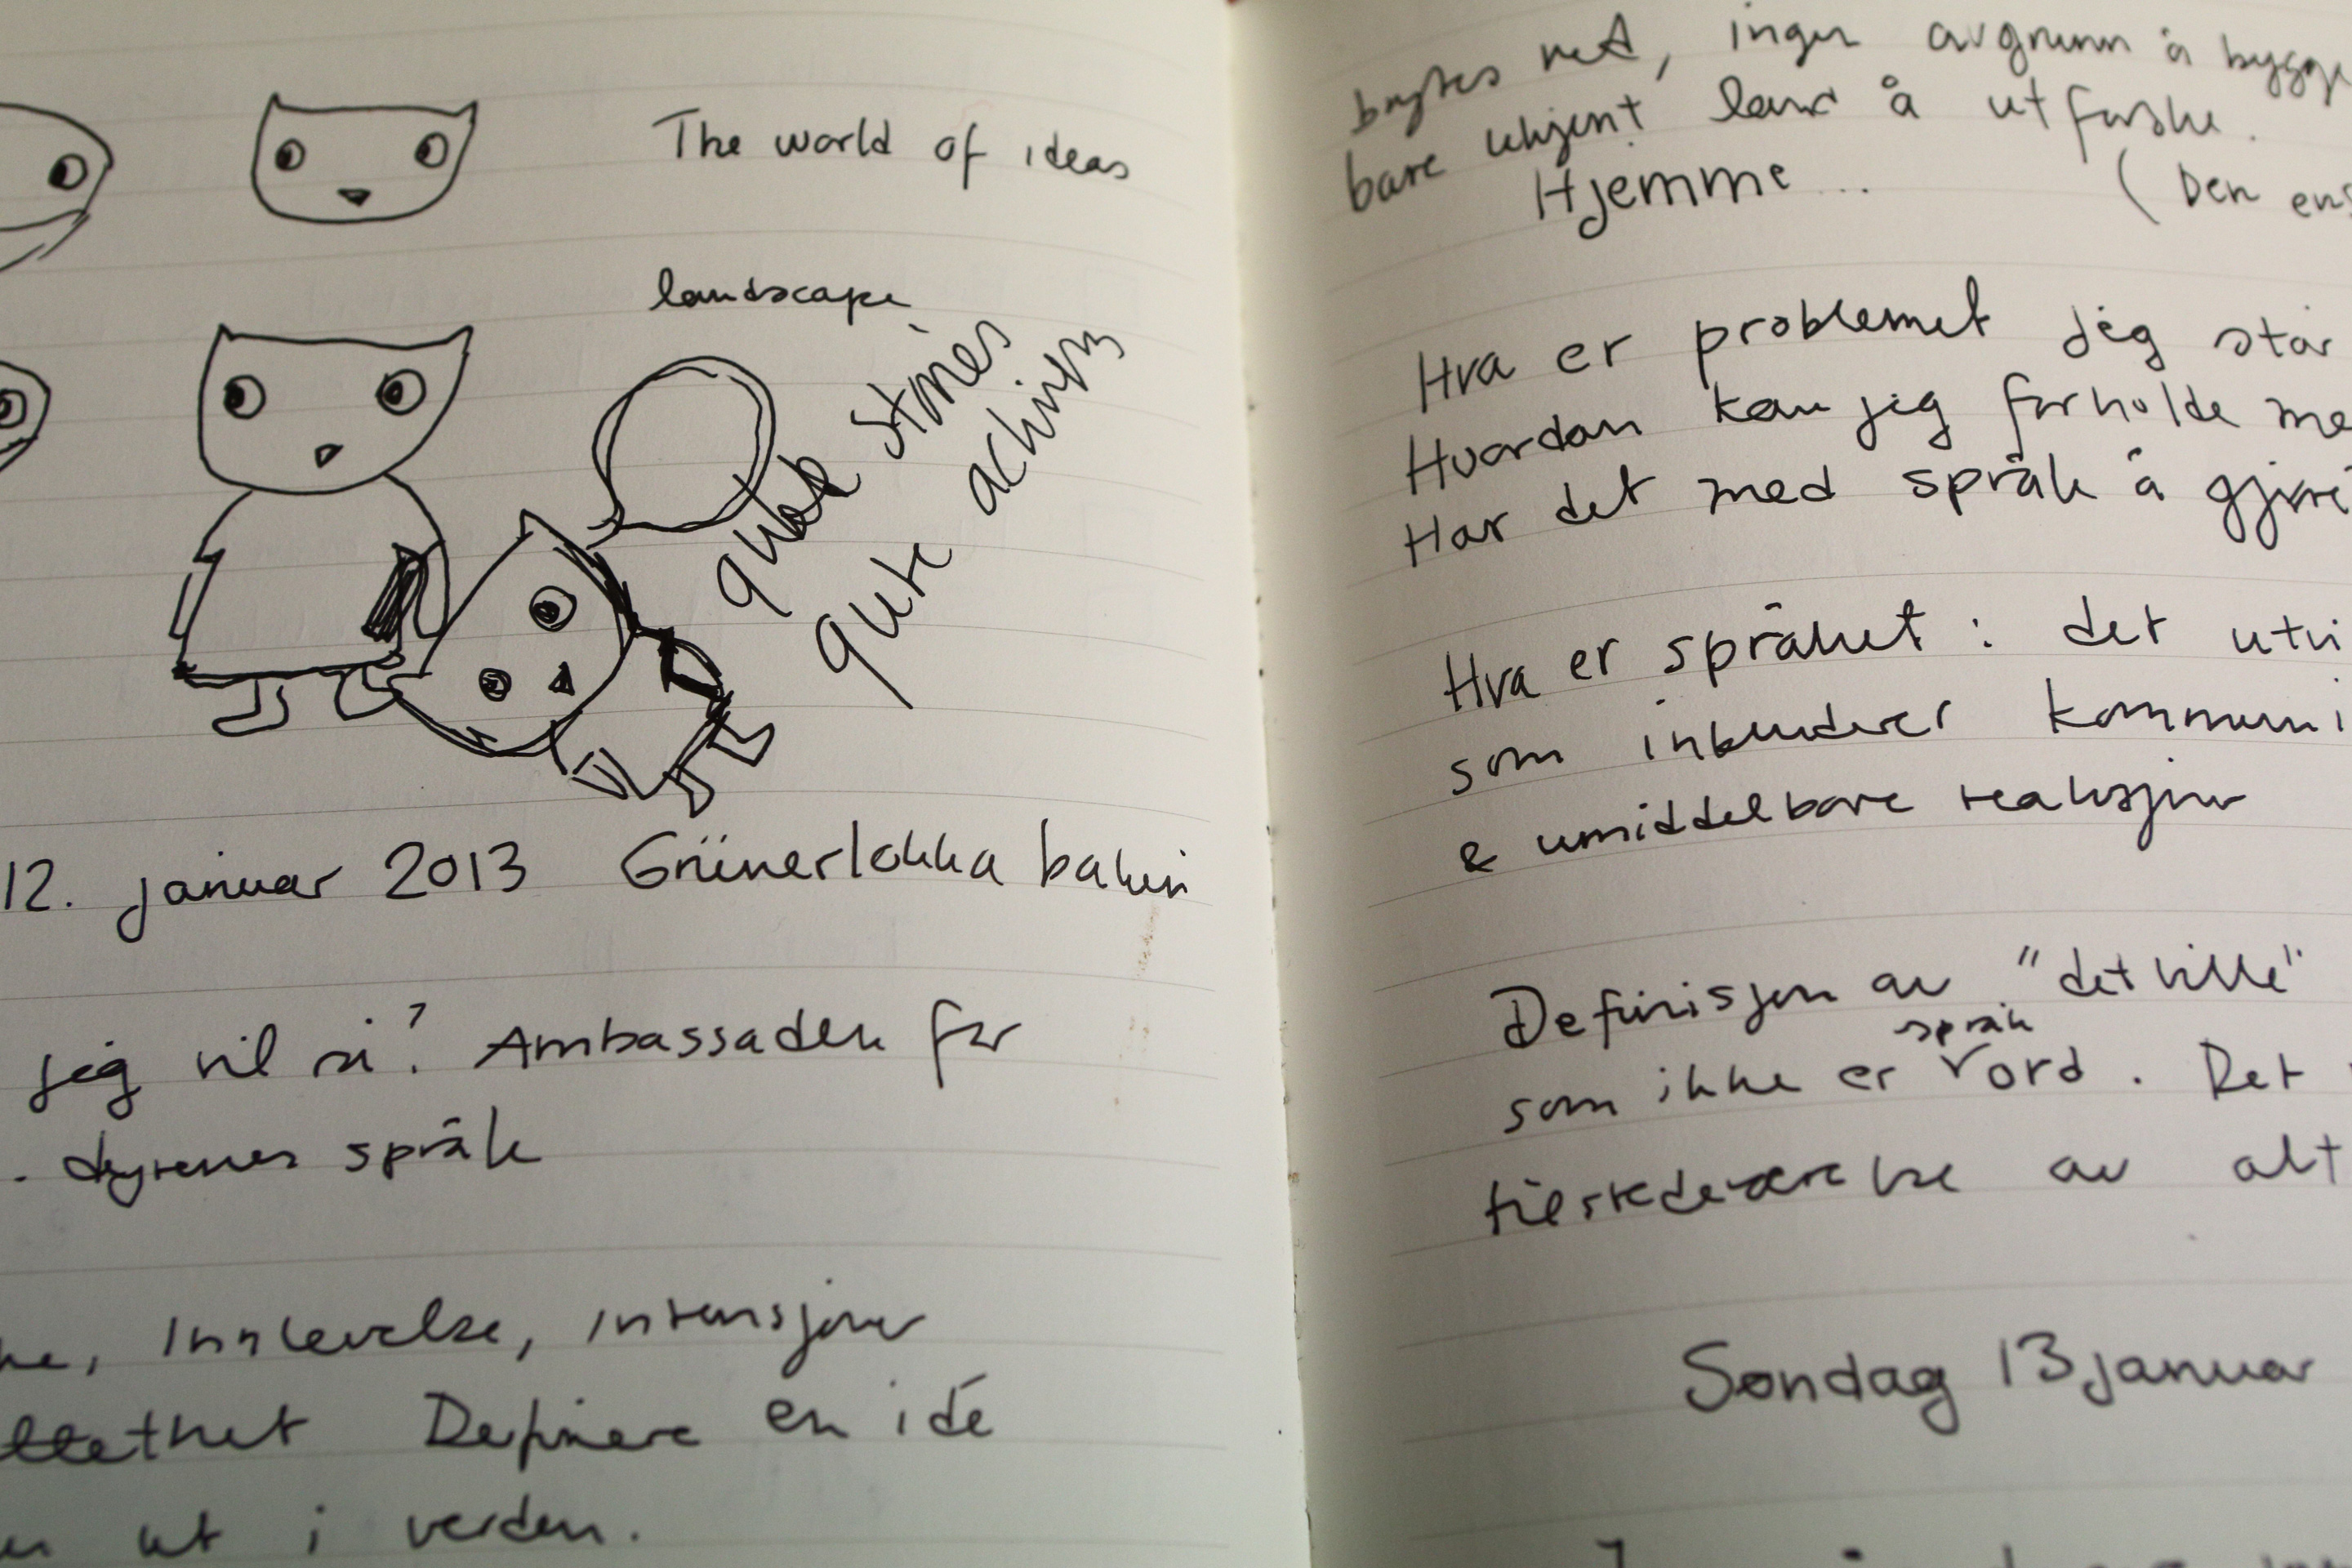 The world of ideas
landscape
stories
qute
12. januar 2013 Grünerløkka bakeri
jeg vil si? Ambassaden for
. dyrenes språk
Innlevelse, intensjoner
Definere en idé
ut i verden.
ned, ingen avgrunn å bygge
bare ukjent land å utforske.
Hjemme...
(Den ens
Hva er problemet jeg står
Hvordan kan jeg forholde me
Har det med språk å gjøre
Hva er språket: det utvi
som inkluderer kommuni
& umiddelbare reaksjoner
Definisjon av "det ville"
språk
som ikke er ord. Det
tilstedeværelse av alt
Søndag 13 januar